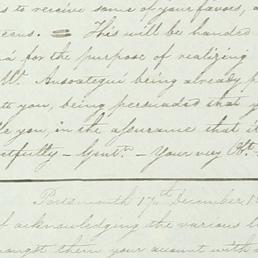 s to receive some of your favors, a
eans. = This will be handed
na for the purpose of realizing
Mr. Ansoategui being already p
to you, being persuaded that y
le you, in the assurance that it
ectfully - Gentn. - Your very Ob.
Portsmouth 17th December, 1
of acknowledging the various l
amongst them your account with